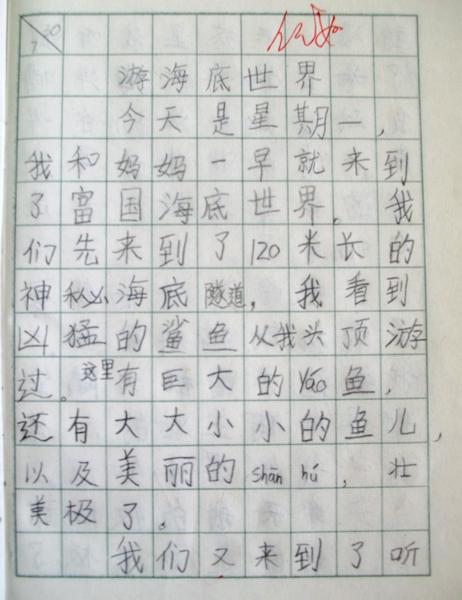 30
7
游海底世界
今天是星期一，
我和妈妈一早就来到
了富国海底世界。我
们先来到了120米长的
神秘海底隧道，我看到
凶猛的鲨鱼从我头顶游
过。这里有巨大的yáo鱼，
还有大大小小的鱼儿，
以及美丽的shān hú，壮
美极了。
我们又来到了听